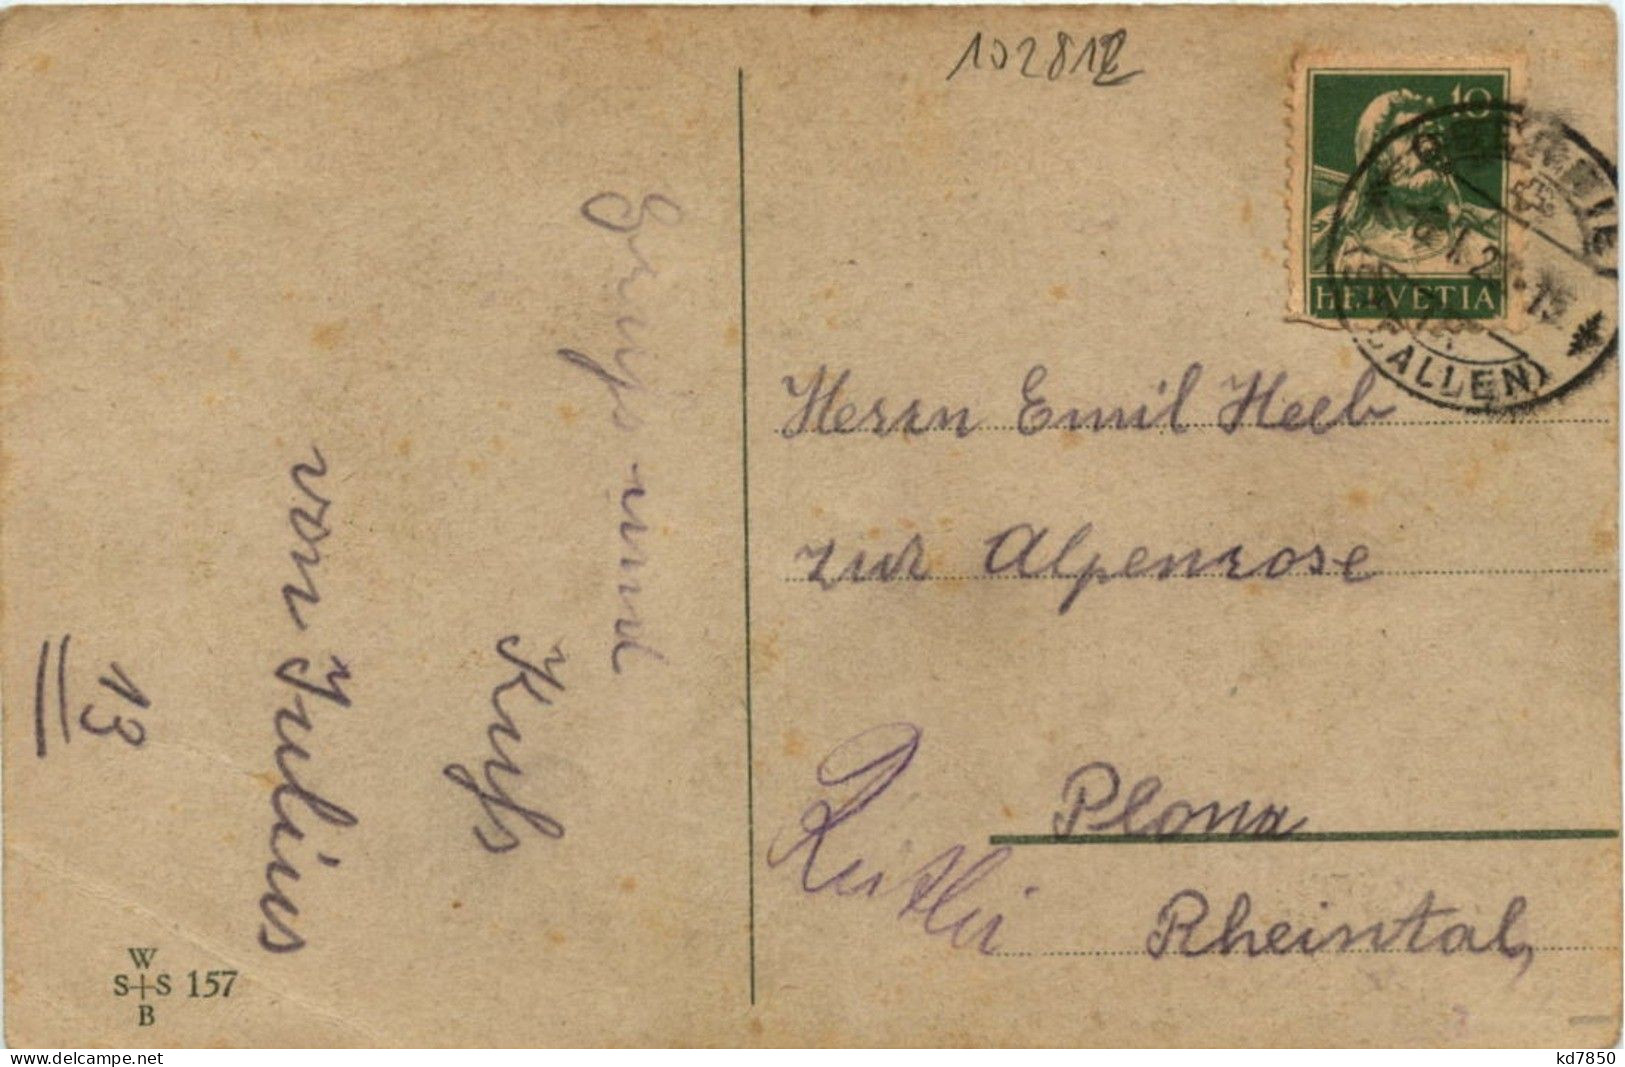 102812
10
HELVETIA
GALLEN)
Gruss und
Kuss
von Julius
13
Herrn Emil Heeb
zur Alpenrose
Plona
Rüthi
Rheintal,
W
S+S 157
B
www.delcampe.net
kd7850